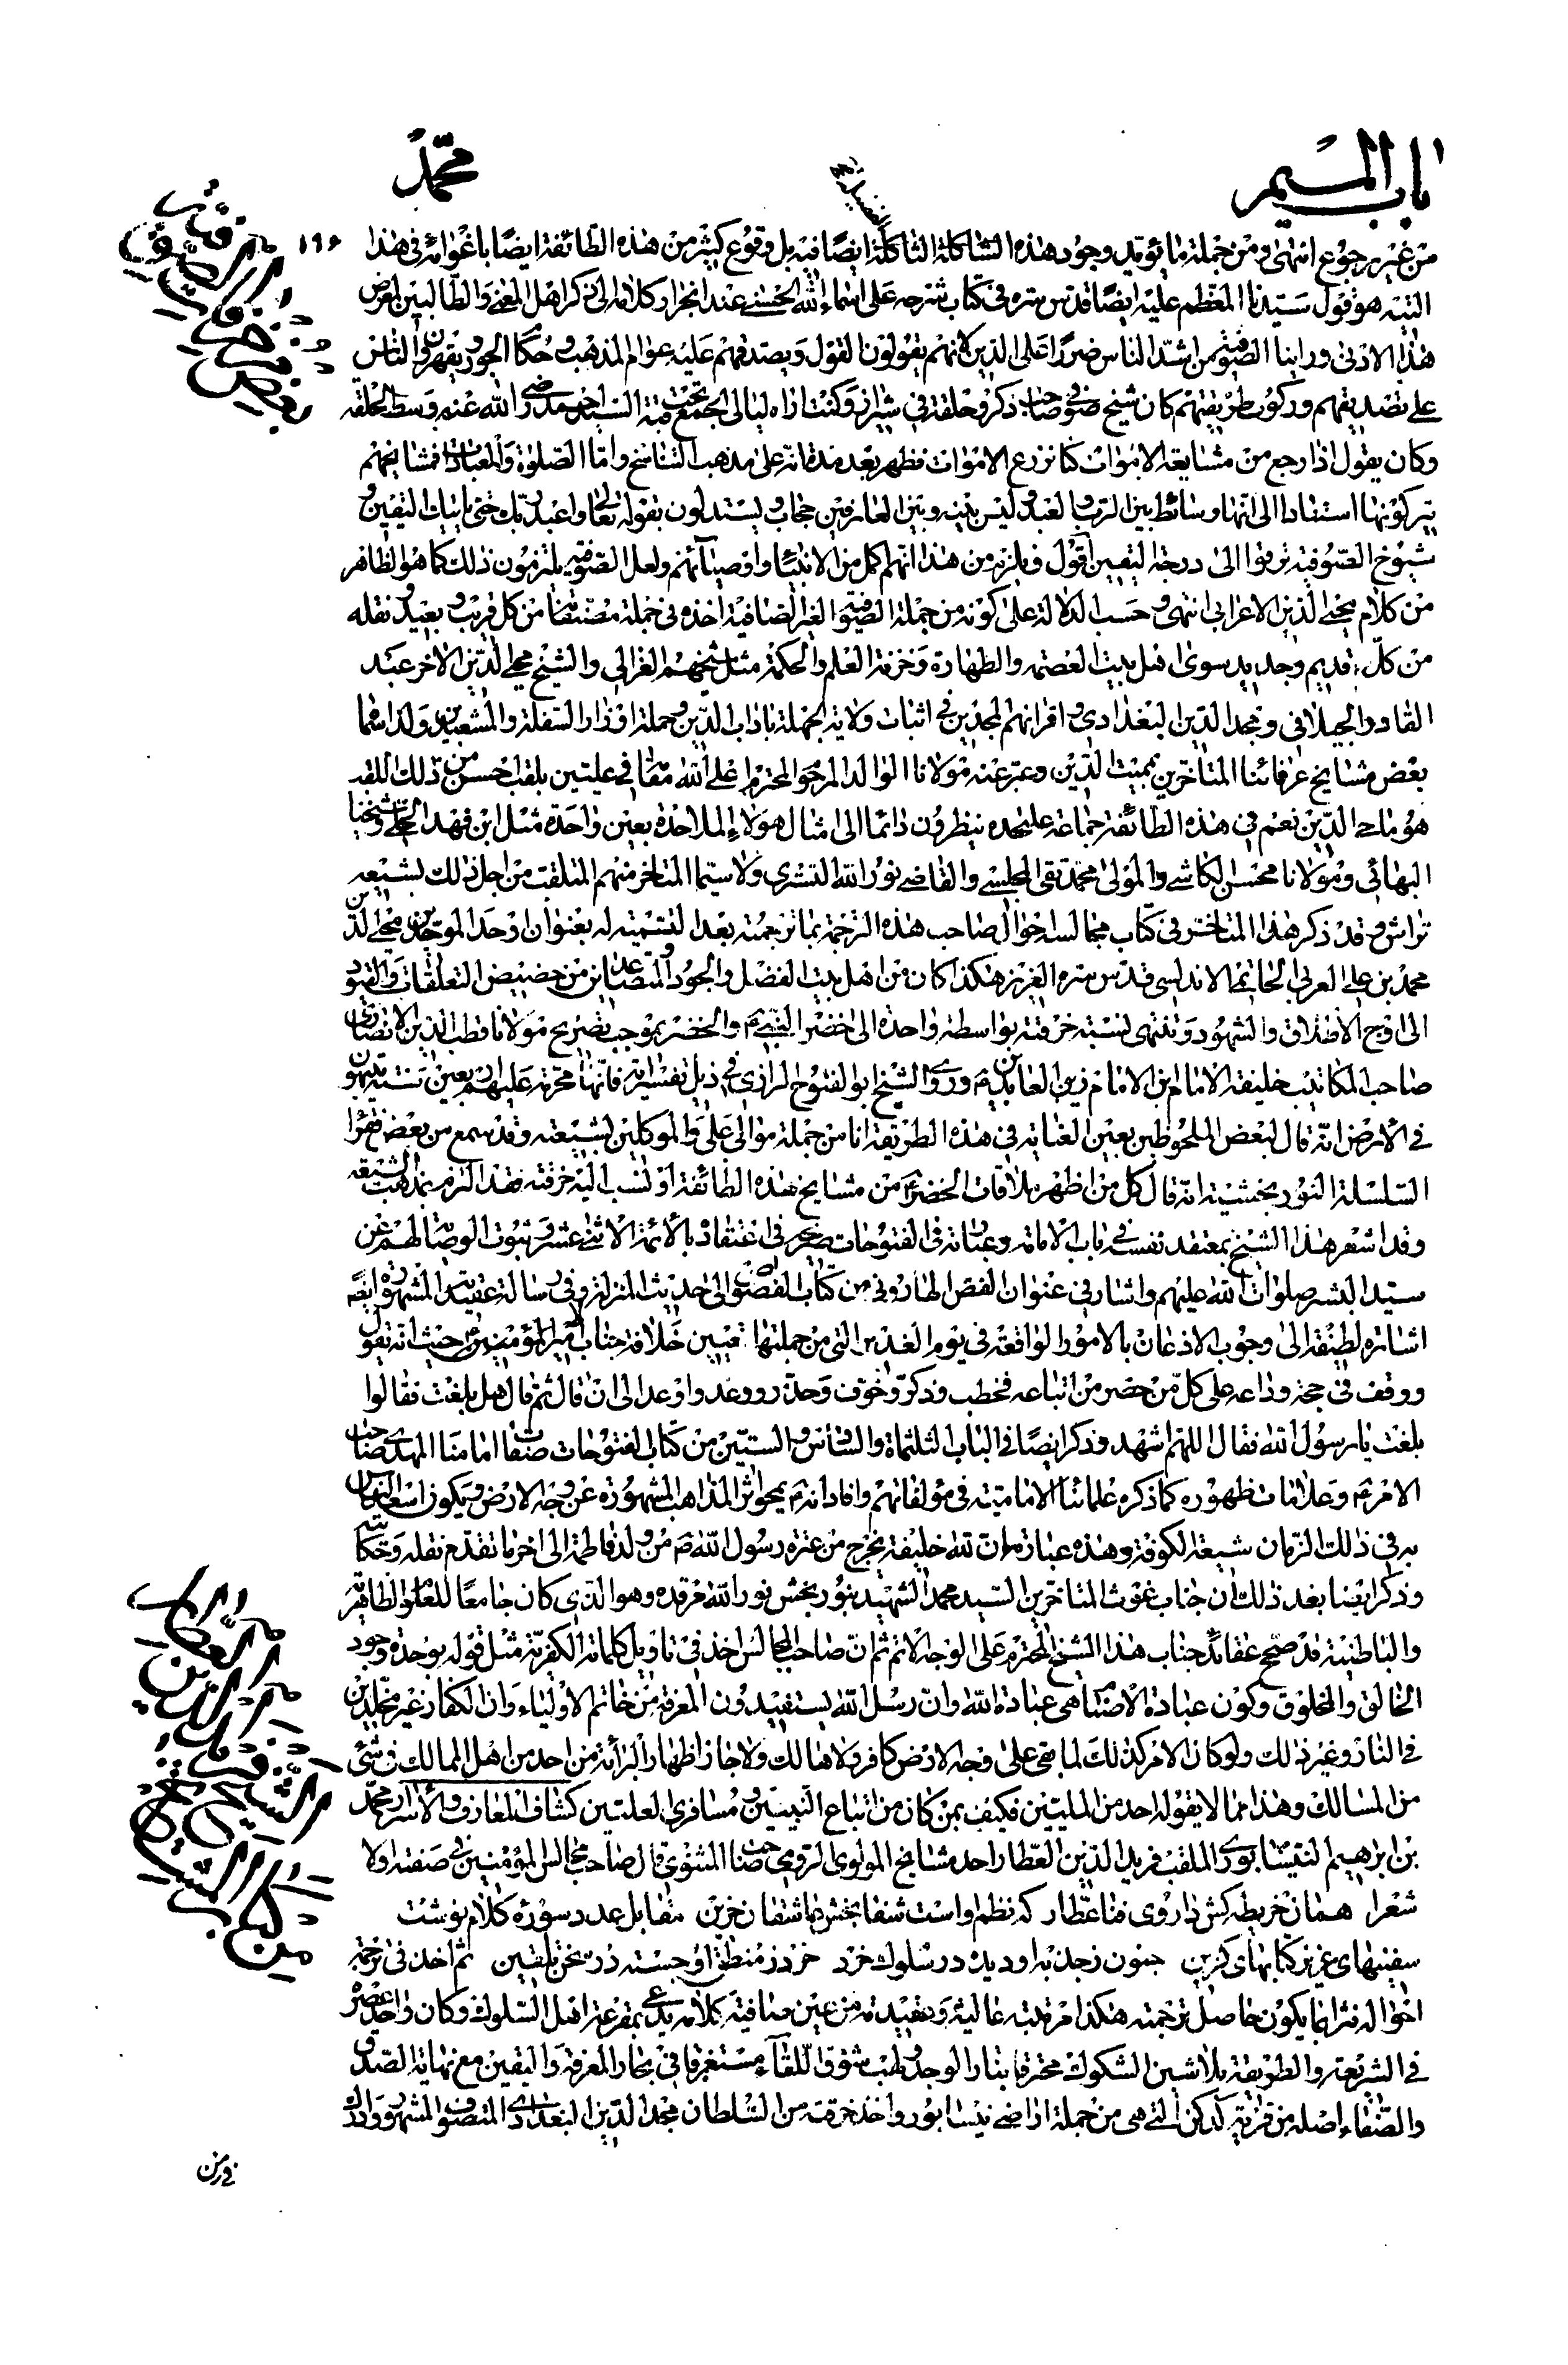 باب الميم
محمد
١٩۶
من غير رجوع انتهى و من جملة ما يؤيد وجود هذه الشاكلة الثاكلة ايضا فيه بل وقوع كثير من هذه الطائفة ايضا باغوائه فى هذا
التيه هو قول سيدنا المعظم عليه ايضا قدس سره فى كتاب شرحه على اسماء الله الحسنى عند انجرار كلامه الى ذكر اهل المعنى و الطالبين لعرض
هذا الادنى و راينا الصوفية من اشد الناس ضررا على الدين لانهم يقولون القول و يصدقهم عليه عوام المذهب و حكام الجور يقهرون الناس
على تصديقهم و ركوب طريقتهم كان شيخ صوفى صاحب ذكر و حلقة فى شيراز و كنت اراه ليالى الجمع تحت قبة السيد احمد رضى الله عنه وسط الحلقة
و كان يقول اذا رجع من مشايعة الاموات كنا نزرع الاموات فظهر بعد مدة انه على مذهب التناسخ و اما الصلوة و العبادات فمشايخهم
يتركونها استنادا الى انها وسائط بين الرب و العبد و ليس بينه و بين العارفين حجاب و يستدلون بقوله تعالى و اعبد ربك حتى ياتيك اليقين و
شيوخ الصوفية ترقوا الى درجة اليقين اقول و يلزم من هذا انهم اكمل من الانبياء و اوصيائهم و لعل الصوفية يلتزمون ذلك كما هو الظاهر
من كلام محيى الدين الاعرابى انتهى و حسب الدلالة على كونه من جملة الصوفية الغير الصافية اخذه فى جملة مصنفاته من كل قريب و بعيد و نقله
من كل قديم و جديد سوى اهل بيت العصمة و الطهارة و خزنة العلم و الحكمة مثل شيخهم الغزالى و الشيخ محيى الدين الاخر عبد
القادر الجيلانى و مجد الدين البغدادى و اقرانهم المجدين فى اثبات ولاية الجهلة باداب الدين و حملة اوزار السفلة و المشعبدين و لذا سماه
بعض مشايخ عرفائنا المتاخرين بمميت الدين و عبر عنه مولانا الوالد المرحوم المحترم اعلى الله مقامه فى عليين بلقب احسن من ذلك اللقب
هو ماحى الدين نعم فى هذه الطائفة جماعة عليحدة ينظرون دائما الى امثال هؤلاء الملاحدة بعين واحدة مثل ابن فهد الحلى و شيخنا
البهائى و مولانا محسن الكاشى و المولى محمد تقى المجلسى و القاضى نور الله التسترى و لا سيما المتاخر منهم المتلقب من اجل ذلك بشيعه
تراش و قد ذكر هذا المتاخر فى كتاب مجالسه احوال صاحب هذه الترجمة بما ترجمته بعد التسمية له بعنوان اوحد الموحدين محيى الدين
محمد بن على العربى الحاتمى الاندلسى قدس سره العزيز هكذا كان من اهل بيت الفضل و الجود و المتصاعدين من حضيض التعلقات و القيود
الى اوج الاطلاق و الشهود و تنتهى نسبة خرقته بواسطة واحدة الى خضر النبى و الخضر بموجب تصريح مولانا قطب الدين الانصارى
صاحب المكاتيب خليفة الامام ابن الامام زين العابدين و روى الشيخ ابو الفتوح الرازى فى ذيل تفسير اية فانها محرمة عليهم اربعين سنة يتيهون
فى الارض انه قال لبعض الملحوظين بعين العناية فى هذه الطريقة انا من جملة موالى على و الموكلين بشيعته و قد سمع من بعض فقراء
السلسلة النوربخشية انه قال كل من اظهر ملاقات الخضر من مشايخ هذه الطائفة او نسب اليه خرقته فقد التزم بمذهب الشيعة
و قد اشعر هذا الشيخ بمعتقد نفسه فى باب الامامة و عباراته فى الفتوحات صريحة فى اعتقاده بالأئمة الاثنى عشر و ثبوت الوصاية لهم عن
سيد البشر صلوات الله عليهم و اشار فى عنوان الفص الهارونى من كتاب الفصوص الى حديث المنزلة و فى رسالة عقيدته المشهورة ايضا
اشارة لطيفة الى وجوب الاذعان بالامور الواقعة فى يوم الغدير التى من جملتها تعيين خلافة جناب امير المؤمنين حيث انه يقول
و وقف فى حجة وداعه على كل من حضر من اتباعه فخطب و ذكر و خوف و حذر و وعد و اوعد الى ان قال ثم قال هل بلغت فقالوا
بلغت يا رسول الله فقال اللهم اشهد و ذكر ايضا فى الباب الثلثمأة و السادس و الستين من كتاب الفتوحات صفات امامنا المهدى صاحب
الامر و علامات ظهوره كما ذكره علمائنا الامامية فى مؤلفاتهم و افاد انه يمحو اثر المذاهب المشهورة عن وجه الارض و يكون اسعد الناس
به فى ذلك الزمان شيعة الكوفة و هذه عبارته ان لله خليفة يخرج من عترة رسول الله من ولد فاطمة الى اخر ما تقدم نقله و حكايته
و ذكر ايضا بعد ذلك ان جناب غوث المتاخرين السيد محمد الشهيد بنور بخش نور الله مرقده و هو الذى كان جامعا للعلوم الظاهرية
و الباطنية قد صحح عقائد جناب هذا الشيخ المحترم على الوجه الاتم ثم ان صاحب المجالس اخذ فى تاويل كلماته الكفرية مثل قوله بوحدة وجود
الخالق و المخلوق و كون عبادة الاصنام هى عبادة الله و ان رسل الله يستفيدون المعرفة من خاتم الاولياء و ان الكفار غير مخلدين
فى النار و غير ذلك و لو كان الامر كذلك لما بقى على وجه الارض كافر و لا هالك و لا جاز اظهار البرائة من احد من اهل الممالك فى شئ
من المسالك و هذا مما لا يقوله احد من المليين فكيف بمن كان من اتباع النبيين و مسافرى العليين كشاف المعارف و الأسرار محمد
بن ابراهيم النيشابورى الملقب فريد الدين العطار احد مشايخ المولوى الرومى صاحب المثنوى قال صاحب مجالس المؤمنين فى صفته اولا
شعرا همان خريطه كش داروى فنا عطار كه نظم اوست شفا بخش عاشقان حزين مقابل عدد سوره كلام نوشت
سفينهاى عزيز كتابهاى گزين جنون زجذبه او ديده در سلوك خرد خرد ز منطق او جسته در سخن تلقين ثم اخذ فى ترجمة
احواله نثرا بما يكون حاصل ترجمته هكذا مرتبته عالية و عقيدته من عين صافية كلامه يدعى بمقرعة اهل السلوك و كان واحد عصره
فى الشريعة و الطريقة بلا شين الشكوك محترقا بنار الوجد و طلب شوق اللقآء مستغرقا فى بحار المعرفة و اليقين مع نهاية الصدق
و الصفاء اصله من قرية كدكن التى هى من جملة اراضى نيسابور و اخذ خرقته من السلطان مجد الدين البغدادى المتصوف المشهور و ادرك
فى زمن